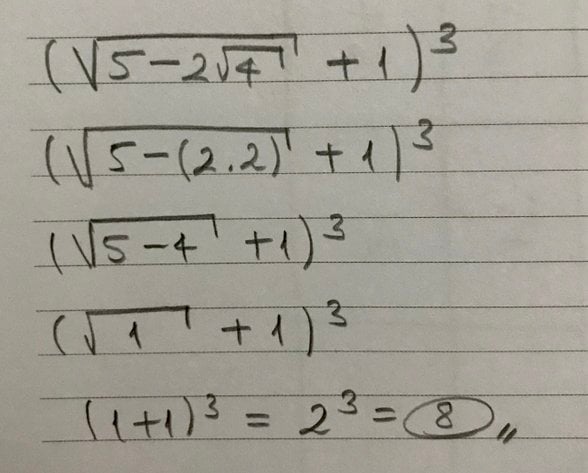 (√(5-2√4) + 1)³
(√(5-(2.2)) + 1)³
(√(5-4) + 1)³
(√1 + 1)³
(1+1)³ = 2³ = 8 〃